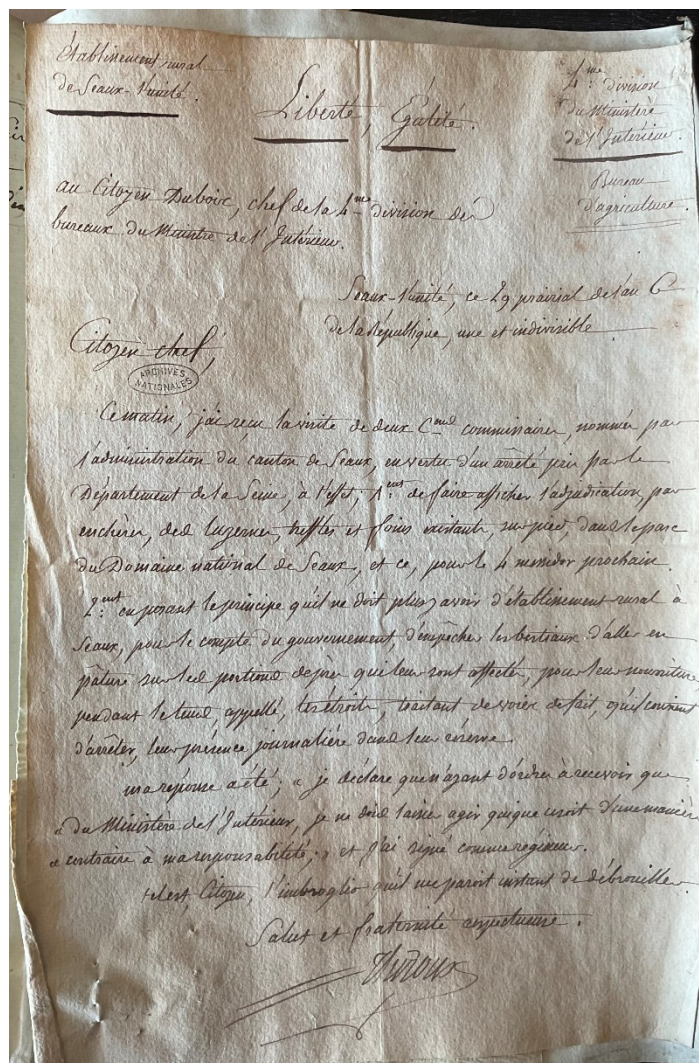 Etablissement rural
de Sceaux-l'unité.
Liberté, Egalité.
4.me division
du Ministère
de l'Intérieur.
Bureau
d'agriculture.
au Citoyen Dubois, chef de la 4.me division des
bureaux du Ministre de l'Intérieur.
Sceaux-l'unité, ce 29 prairial de l'an 6
de la République, une et indivisible
Citoyen chef,
ARCHIVES
NATIONALES
Ce matin, j'ai reçu la visite de deux C.ens commissaires, nommés par
l'administration du canton de Sceaux, en vertu d'un arrêté pris par le
Département de la Seine, à l'effet, 1.ent de faire afficher l'adjudication, par
encheres, des luzernes, treffles et foins existants, sur pied, dans le parc
du Domaine national de Sceaux, et ce, pour le 4 messidor prochain.
2.ent en posant le principe qu'il ne doit plus avoir d'établissement rural à
Sceaux, pour le compte du gouvernement, d'empêcher les bestiaux d'aller en
pâture sur les portions de prés qui leur sont affectés, pour leur nourriture
pendant le tems, appellé, traitant de voies de fait, qu'il convient
d'arrêter, leur présence journalière dans leur réserve.
ma réponse a été; « je déclare que n'ayant d'ordres à recevoir que
« du Ministère de l'Intérieur, je ne dois laisser agir quique ce soit d'une manière
« contraire à ma responsabilité; » et j'ai signé comme régisseur.
tel est, Citoyen, l'imbroglio qu'il me paroit instant de débrouiller.
Salut et fraternité respectueuse.